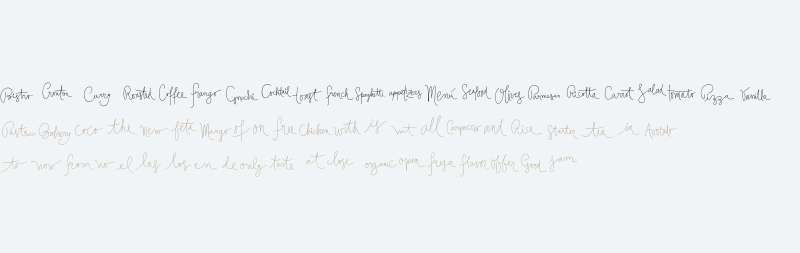 Bistro Curry Roasted Coffee Mango Gnocchi Cocktail toast french Spaghetti appetizers Menú Seafood Olives Parmesan Ricotta Carrot Salad tomato Pizza Vanilla
Bakery Coco the new fête Mango of on free Chicken with is all and Rice tea in
to now from no el las los en de only taste at close organic open fresh flavor offer Good jam